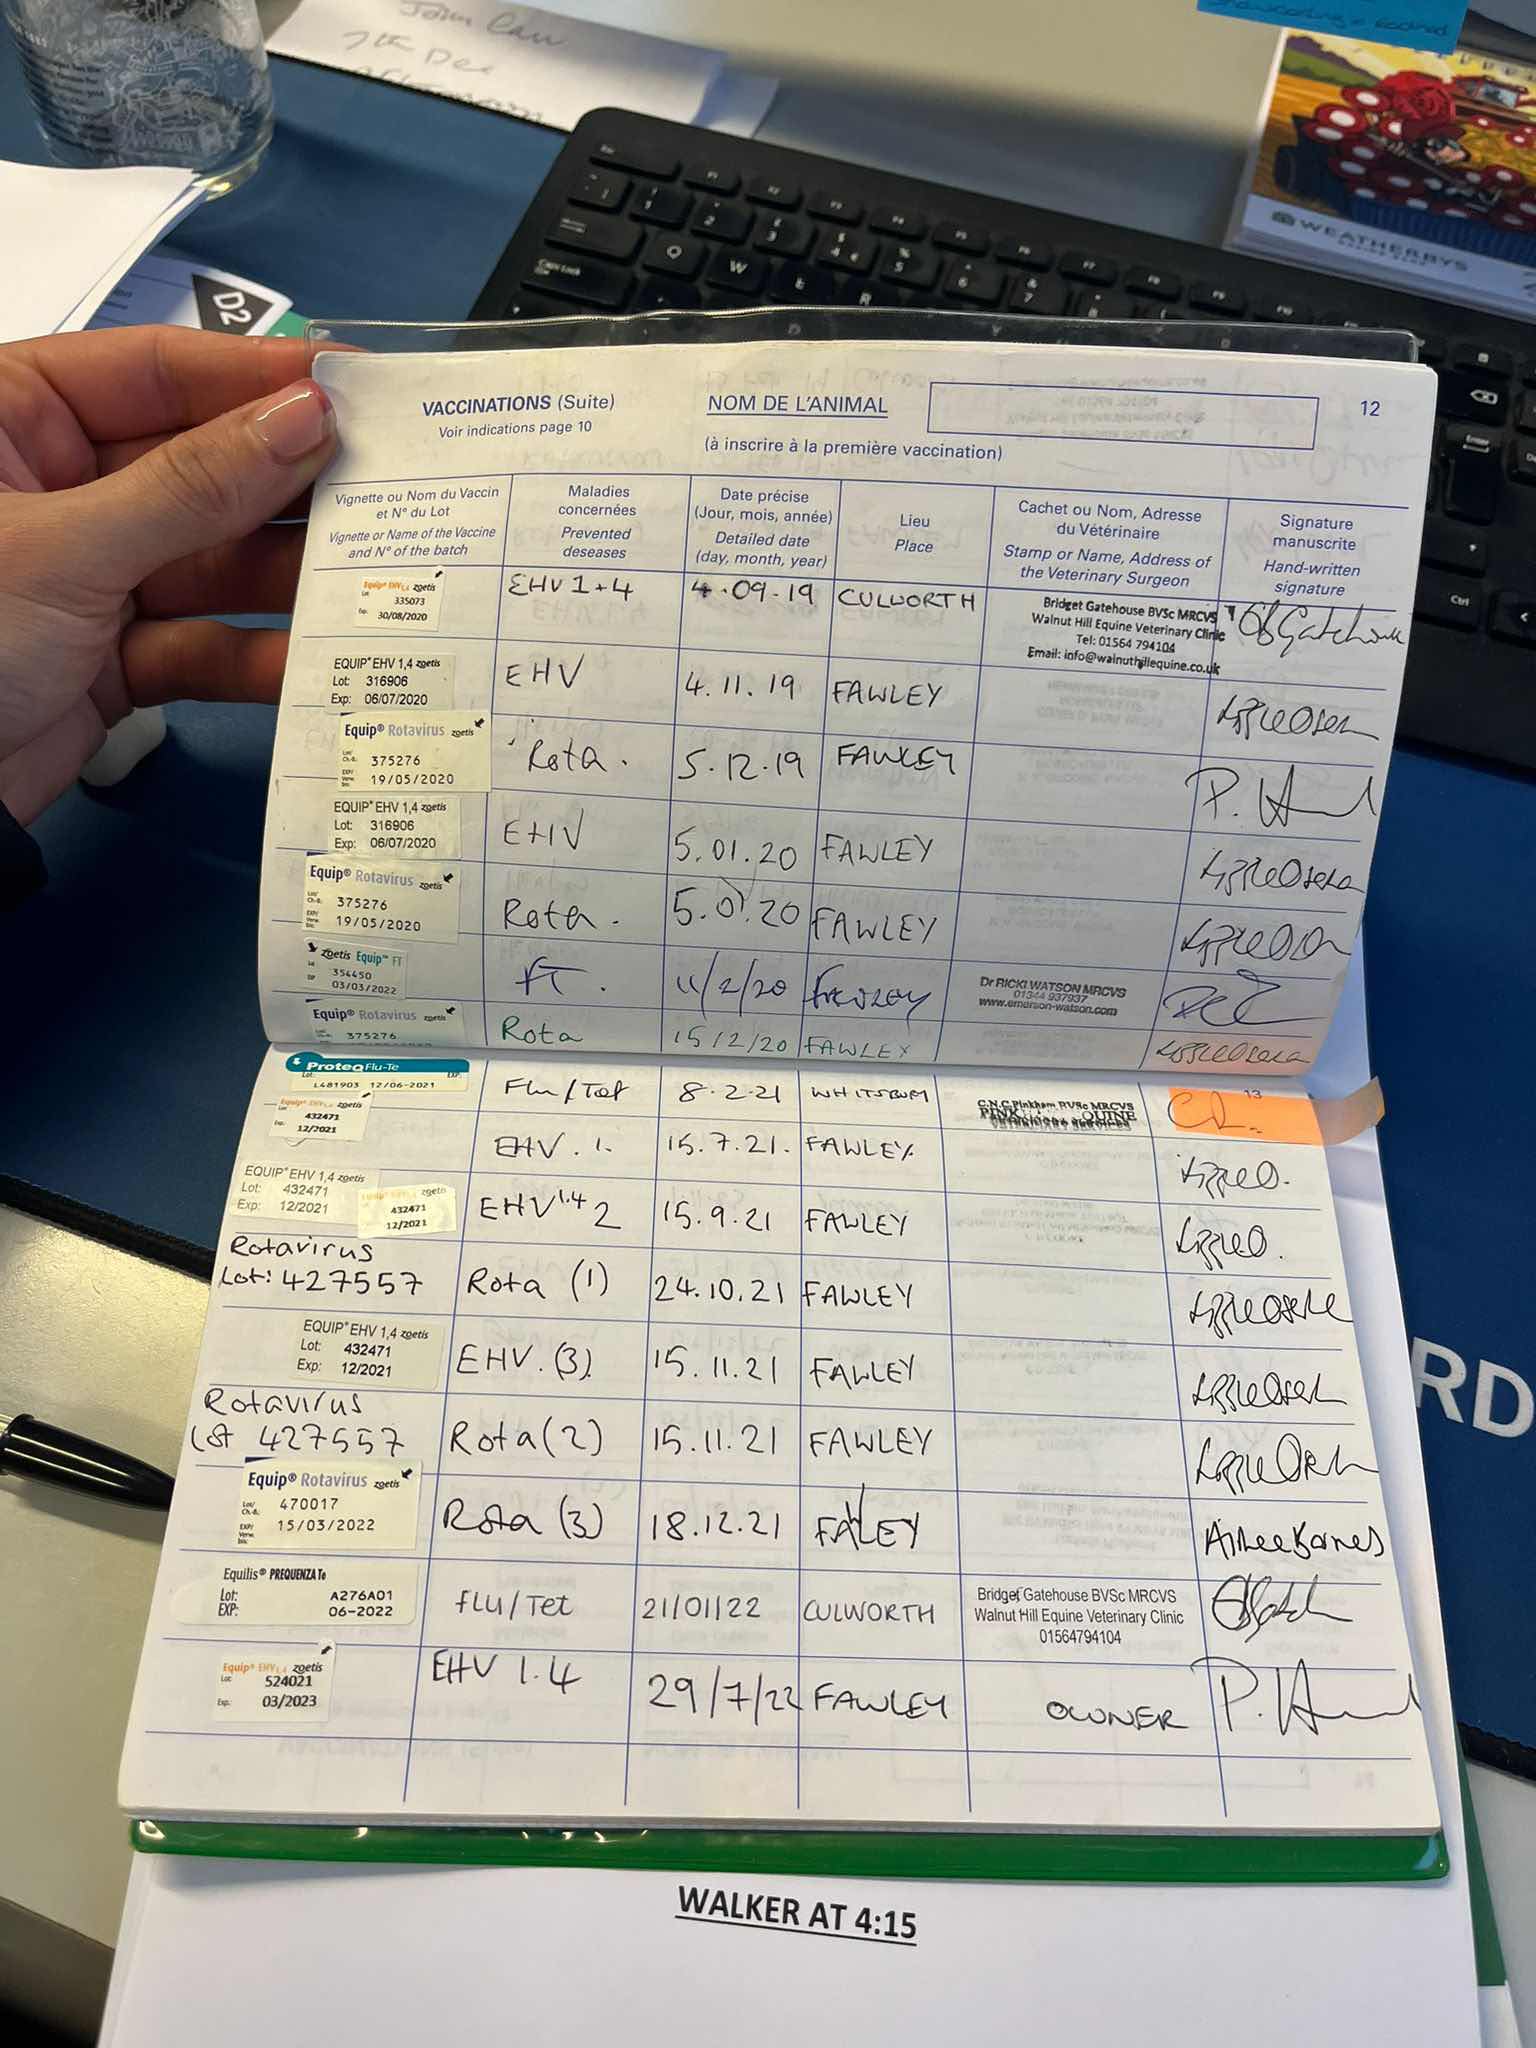 John Carr
7th Dec
D2
WEATHERBYS
VACCINATIONS (Suite)
Voir indications page 10
NOM DE L'ANIMAL
(à inscrire à la première vaccination)
12
Vignette ou Nom du Vaccin et N° du Lot
Vignette or Name of the Vaccine and N° of the batch
Maladies concernées
Prevented deseases
Date précise (Jour, mois, année)
Detailed date (day, month, year)
Lieu
Place
Cachet ou Nom, Adresse du Vétérinaire
Stamp or Name, Address of the Veterinary Surgeon
Signature manuscrite
Hand-written signature
Equip® EHV1,4 zoetis
Lot 335073
Exp. 30/08/2020
EHV 1+4
4.09.19
CULWORTH
Bridget Gatehouse BVSc MRCVS
Walnut Hill Equine Veterinary Clinic
Tel: 01564 794104
Email: info@walnuthillequine.co.uk
EQUIP® EHV 1,4 zoetis
Lot: 316906
Exp: 06/07/2020
EHV
4.11.19
FAWLEY
Equip® Rotavirus zoetis
375276
19/05/2020
Rota.
5.12.19
FAWLEY
EQUIP® EHV 1,4 zoetis
Lot: 316906
Exp: 06/07/2020
EHV
5.01.20
FAWLEY
Equip® Rotavirus zoetis
375276
19/05/2020
Rota.
5.01.20
FAWLEY
zoetis Equip™ FT
354450
03/03/2022
FT.
11/2/20
FAWLEY
Dr RICKI WATSON MRCVS
01344 937937
www.emerson-watson.com
Equip® Rotavirus zoetis
375276
Rota
15/2/20
FAWLEY
13
ProteqFlu-Te
Lot: L481903 12/06-2021 EXP:
Flu/Tet
8.2.21
WHITSBURY
C.N.C.Pinkham BVSc MRCVS
Equip® EHV1,4 zoetis
432471
12/2021
EHV.1.
15.7.21.
FAWLEY
EQUIP® EHV 1,4 zoetis
Lot: 432471
Exp: 12/2021
zoetis
432471
12/2021
EHV 1.4 2
15.9.21
FAWLEY
Rotavirus
Lot: 427557
Rota (1)
24.10.21
FAWLEY
EQUIP® EHV 1,4 zoetis
Lot: 432471
Exp: 12/2021
EHV.(3)
15.11.21
FAWLEY
Rotavirus
Lot 427557
Rota(2)
15.11.21
FAWLEY
Equip® Rotavirus zoetis
470017
15/03/2022
Rota (3)
18.12.21
FAWLEY
Aimee Barnes
Equilis® PREQUENZA Te
Lot: A276A01
EXP: 06-2022
FLU/Tet
21/01/22
CULWORTH
Bridget Gatehouse BVSc MRCVS
Walnut Hill Equine Veterinary Clinic
01564794104
Equip® EHV1,4 zoetis
Lot 524021
Exp. 03/2023
EHV 1.4
29/7/22
FAWLEY
OWNER
RD
WALKER AT 4:15